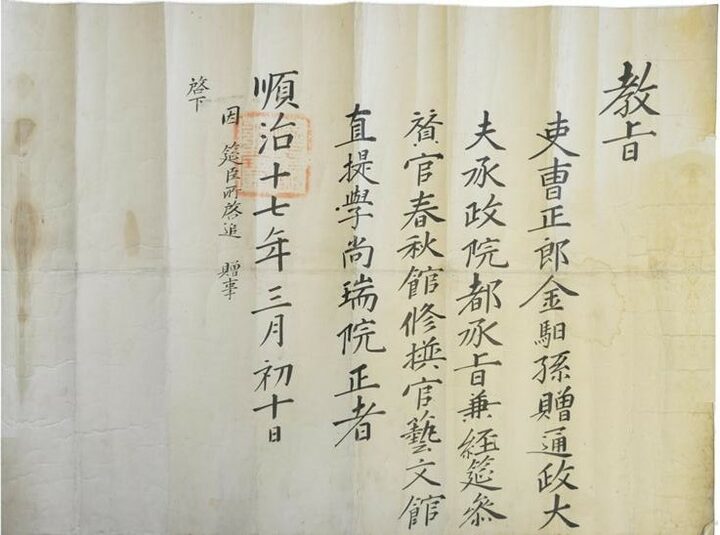 教旨
吏曹正郎金馹孫贈通政大
夫承政院都承旨兼經筵參
贊官春秋館修撰官藝文館
直提學尚瑞院正者
順治十七年三月初十日
因 筵臣所啓追 贈事
啓下